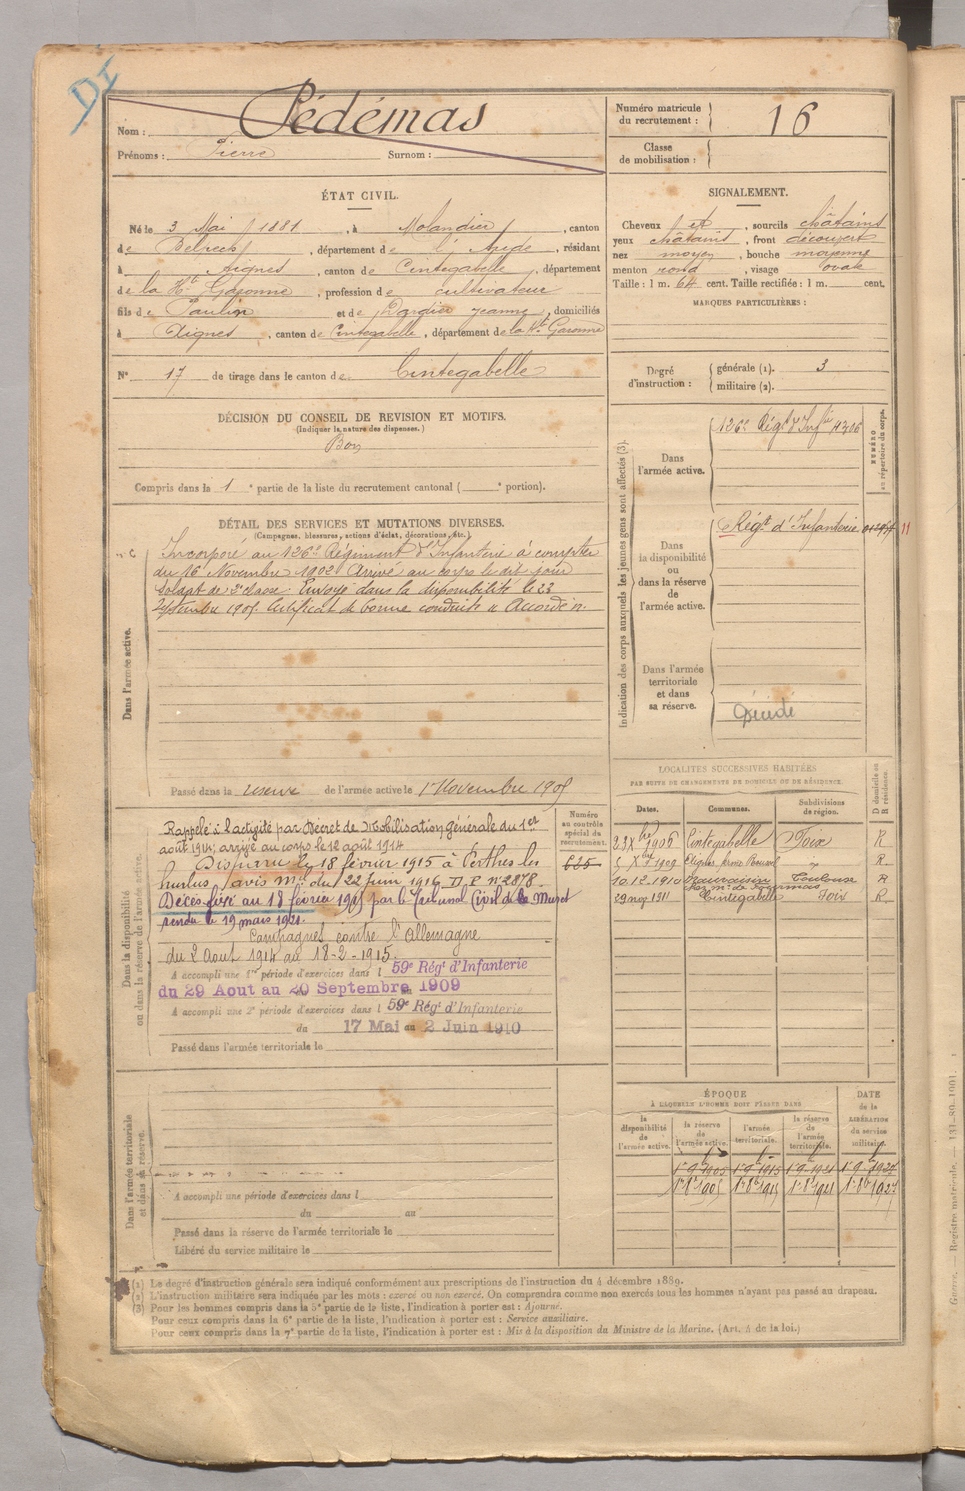 DI
Nom : Pédémas
Prénoms : Pierre Surnom :
Numéro matricule du recrutement : 16
Classe de mobilisation :
ÉTAT CIVIL.
Né le 3 Mai 1881, à Molandier, canton
de Belpech, département de l'Aude, résidant
à Aignes, canton de Cintegabelle, département
de la Hte Garonne, profession de cultivateur
fils de Paulin et de Dardier Jeanne, domiciliés
à Aignes, canton de Cintegabelle, département de la Hte Garonne
N° 17 de tirage dans le canton de Cintegabelle
DÉCISION DU CONSEIL DE REVISION ET MOTIFS.
(Indiquer la nature des dispenses.)
Bon
Compris dans la 1e partie de la liste du recrutement cantonal ( e portion).
SIGNALEMENT.
Cheveux et, sourcils châtains
yeux châtains, front découvert
nez moyen, bouche moyenne
menton rond, visage ovale
Taille : 1 m. 64 cent. Taille rectifiée : 1 m. cent.
MARQUES PARTICULIÈRES :
Degré d'instruction : générale (1). 3
militaire (2).
DÉTAIL DES SERVICES ET MUTATIONS DIVERSES.
(Campagnes, blessures, actions d'éclat, décorations, etc.)
Dans l'armée active.
Incorporé au 126e Régiment d'Infanterie à compter
du 16 Novembre 1902 Arrivé au corps le dit jour
soldat de 2e classe. Envoyé dans la disponibilité le 23
Septembre 1905. Certificat de bonne conduite "Accordé".
Passé dans la réserve de l'armée active le 1er Novembre 1905
Indication des corps auxquels les jeunes gens sont affectés (3).
NUMÉRO au répertoire du corps.
Dans l'armée active.
126e Régt d'Infie 4306
Dans la disponibilité ou dans la réserve de l'armée active.
Régt d'Infanterie
Dans l'armée territoriale et dans sa réserve.
Décédé
Dans la disponibilité ou dans la réserve de l'armée active.
Numéro au contrôle spécial du recrutement.
625
Rappelé à l'activité par Décret de Mobilisation Générale du 1er
août 1914; arrivé au corps le 12 août 1914
Disparu le 18 février 1915 à Perthes les
hurlus, avis Mel du 22 Juin 1916 D. P. N° 2878.
Décès fixé au 18 février 1915 par le Tribunal Civil de Muret
rendu le 19 mars 1921.
Campagnes contre l'Allemagne
du 2 Aout 1914 au 18-2-1915.
A accompli une 1re période d'exercices dans l 59e Régt d'Infanterie
du 29 Aout au 20 Septembre 1909
A accompli une 2e période d'exercices dans l 59e Régt d'Infanterie
du 17 Mai au 2 Juin 1910
Passé dans l'armée territoriale le
LOCALITÉS SUCCESSIVES HABITÉES
PAR SUITE DE CHANGEMENTS DE DOMICILE OU DE RÉSIDENCE.
Dates. Communes. Subdivisions de région. D domicile ou R résidence.
23 Xbre 1906 Cintegabelle Foix R
5 Xbre 1909 Aignes " R.
10.12.1910 Mauvaisin Toulouse R
29 nov 1911 Cintegabelle Foix R.
ÉPOQUE
À LAQUELLE L'HOMME DOIT PASSER DANS
la disponibilité de l'armée active. la réserve de l'armée active. l'armée territoriale. la réserve de l'armée territoriale. DATE de la LIBÉRATION du service militaire.
1er 9bre 1905 1er 9bre 1915 1er 9bre 1921 1er 9bre 1927
1er 8bre 1905 1er 8bre 1915 1er 8bre 1921 1er 8bre 1927
Dans l'armée territoriale et dans sa réserve.
A accompli une période d'exercices dans l
du au
Passé dans la réserve de l'armée territoriale le
Libéré du service militaire le
(1) Le degré d'instruction générale sera indiqué conformément aux prescriptions de l'instruction du 4 décembre 1889.
(2) L'instruction militaire sera indiquée par les mots : exercé ou non exercé. On comprendra comme non exercés tous les hommes n'ayant pas passé au drapeau.
(3) Pour les hommes compris dans la 5e partie de la liste, l'indication à porter est : Ajourné.
Pour ceux compris dans la 6e partie de la liste, l'indication à porter est : Service auxiliaire.
Pour ceux compris dans la 7e partie de la liste, l'indication à porter est : Mis à la disposition du Ministre de la Marine. (Art. 4 de la loi.)
Guerre. — Registre matricule. — 131-30-1901.